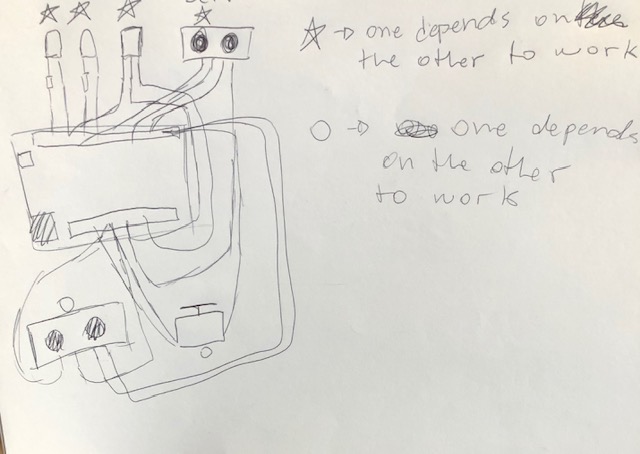 one depends on
the other to work
one depends
on the other
to work